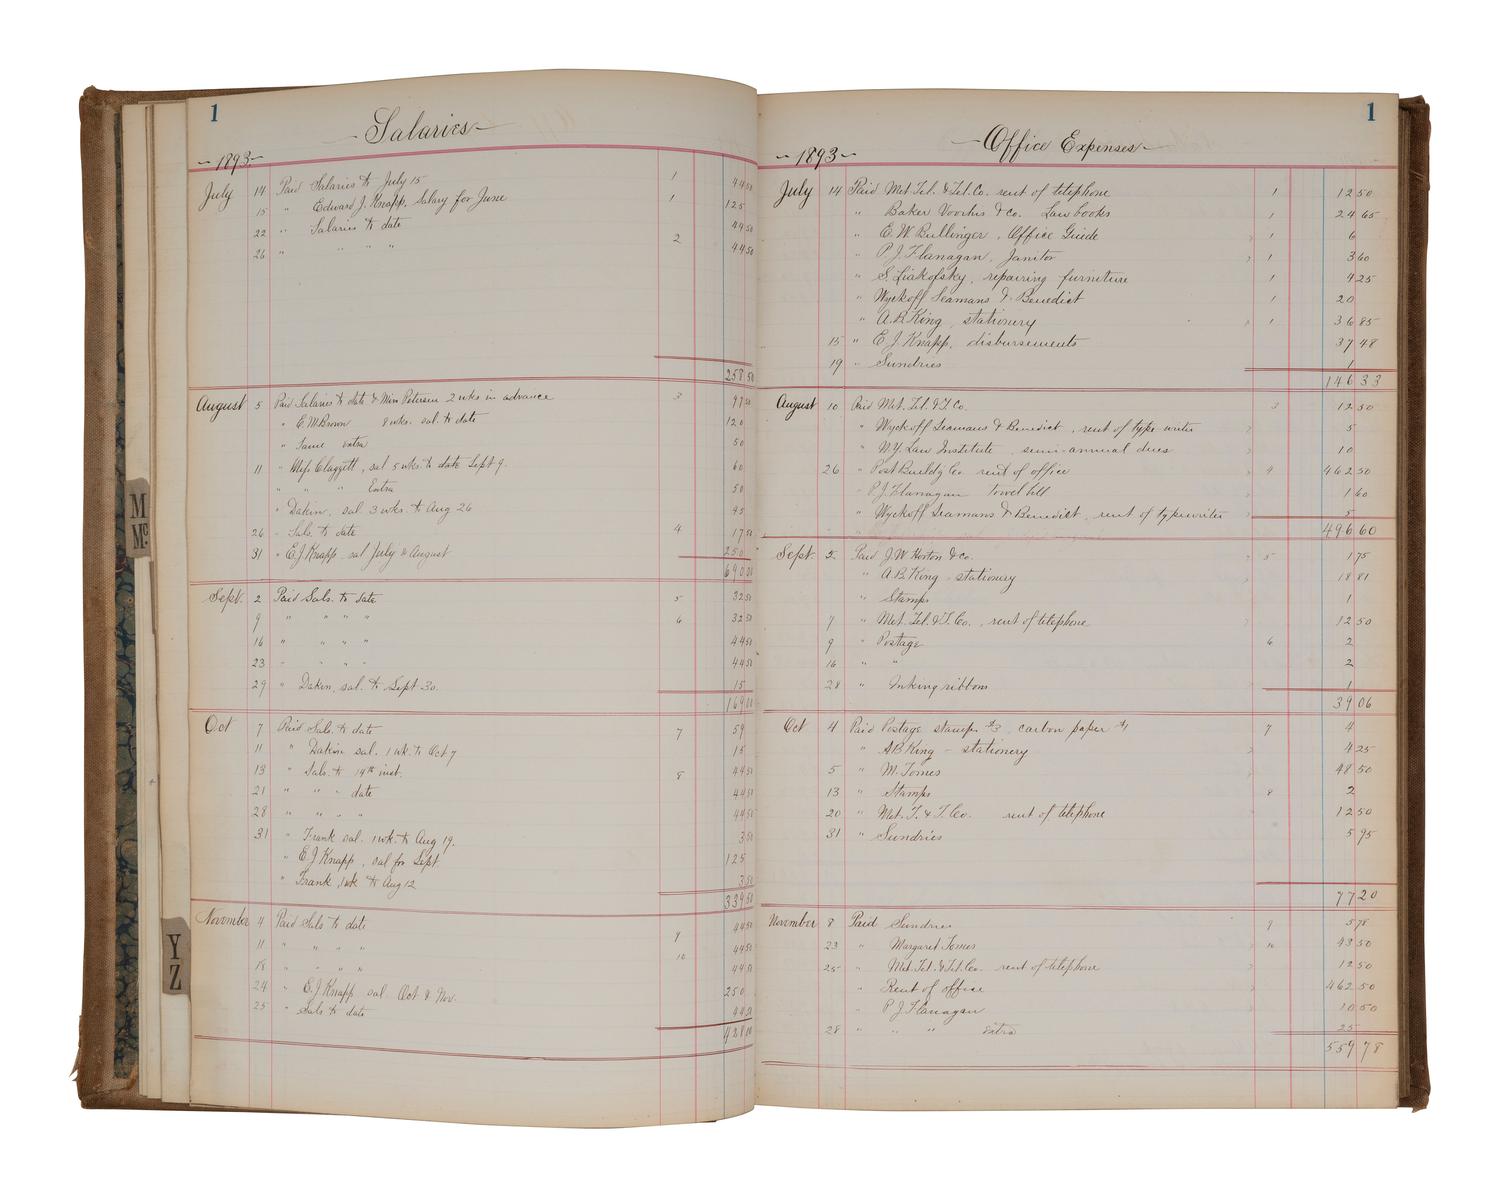 M
Mc
Y
Z
1
Salaries
1893
July 14 Paid Salaries to July 15 1 44 50
15 " Edward J. Knapp, salary for June 1 125
22 " Salaries to date 44 50
26 " " " " 2 44 50
258 50
August 5 Paid Salaries to date & Miss Petersen 2 wks in advance 3 97 50
" E.M. Brown 8 wks. sal. to date 120
" Same extra 50
11 " Miss Claggett, sal 5 wks. to date Sept 9. 60
" " " Extra 50
" Dakin, sal. 3 wks. to Aug 26 45
26 " Sals. to date 4 17 50
31 " E.J. Knapp sal July & August 250
690 00
Sept. 2 Paid Sals. to date 5 32 50
9 " " " " 6 32 50
16 " " " " 44 50
23 " " " " 44 50
29 " Dakin, sal. to Sept 30. 15
169 00
Oct 7 Paid Sals. to date 7 59
11 " Dakin sal. 1 wk. to Oct 7 15
13 " Sals. to 14th inst. 8 44 50
21 " " " date 44 50
28 " " " " 44 50
31 " Frank sal. 1 wk. to Aug 19. 3 50
" E.J. Knapp, sal for Sept 125
" Frank, 1 wk to Aug 12 3 50
339 50
November 4 Paid Sals to date 9 44 50
11 " " " " 10 44 50
18 " " " " 44 50
24 " E.J. Knapp sal. Oct & Nov. 250
25 " Sals to date 44 50
428 00
1
Office Expenses
1893
July 14 Paid Met. Tel. & Tel. Co. rent of telephone 1 12 50
" Baker Voorhis & Co. Law books 1 24 65
" E. W. Bullinger, Office Guide 1 6
" P. J. Flanagan, Janitor 1 3 60
" S. Liakofsky, repairing furniture 1 4 25
" Wyckoff Seamans & Benedict 1 20
" A. B. King, stationery 1 36 85
15 " E. J. Knapp, disbursements 37 48
19 " Sundries 1
146 33
August 10 Paid Met. Tel. & T. Co. 3 12 50
" Wyckoff Seamans & Benedict, rent of type writer 5
" N.Y. Law Institute, semi-annual dues 10
26 " Post Build'g Co. rent of office 4 462 50
" P. J. Flanagan towel bill 1 60
" Wyckoff Seamans & Benedict, rent of typewriter 5
496 60
Sept 2 Paid J. W. Horton & Co. 5 1 75
" A. B. King - stationery 18 81
" Stamps 1
7 " Met. Tel. & T. Co., rent of telephone 12 50
9 " Postage 6 2
16 " " 2
28 " Inking ribbons 1
39 06
Oct 4 Paid Postage stamps $3, carbon paper $1 7 4
" A B King - stationery 4 25
5 " M. Tomes 48 50
13 " Stamps 8 2
20 " Met. T. & T. Co. rent of telephone 12 50
31 " Sundries 5 95
77 20
November 8 Paid Sundries 9 5 78
23 " Margaret Tomes 10 43 50
25 " Met. Tel. & Tel. Co. rent of telephone 12 50
" Rent of office 462 50
" P J Flanagan 10 50
28 " " " extra 25
559 78